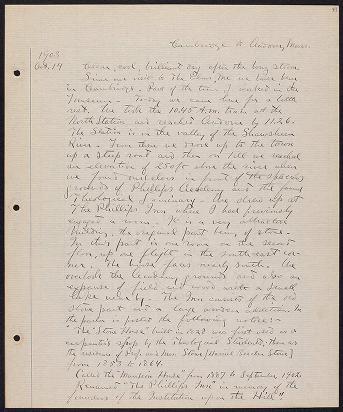 Cambridge to Andover, Mass.
1903
Oct. 14
Clear, cool, brilliant day after the long storm
Since our visit to the Elms, Me. we have been
in Cambridge. Part of the time I worked in the
Museum. Today we came here for a little
rest. We took the 10.45 A.m. train at the
North Station and reached Andover by 11.26.
The Station is in the valley of the Shawsheen
River. From there we drove up to the town
up a steep road and then on till we reached
an elevation of 250 ft. above the river when
we found ourselves in front of the spacious
grounds of Phillips Academy and the famous
Theological Seminary. We drew up at
The Phillips Inn where I had previously
engaged a room. It is a very attractive
building, the original part being of stone.
In this part is our room on the second
floor, up one flight in the south east cor-
ner. The house faces nearly south. We
overlook the Academy grounds and also an
expanse of field and wood with a small
near by. The Inn consists of the old
stone part and a large wooden addition. In
the parlor is posted the following notice:-
"The Stone House" built in 1828 was first used as a
carpenter's shop by the Theological Students, then as
the residence of Prof. and Mrs. Stowe (Harriet Beecher Stowe)
from 1853 to 1864.
Called the "Mansion House" from 1887 to September 1902
Renamed "The Phillips Inn" in memory of the
founders of the Institution upon the Hill"